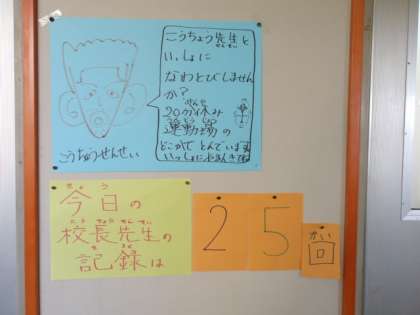 こうちょう先生と
いっしょに
なわとびしません
か?
20分休み
運動場の
どこかで とんでいます
いっしょにとぼうね
こうちょうせんせい
今日の
校長先生の
記録は
25
回